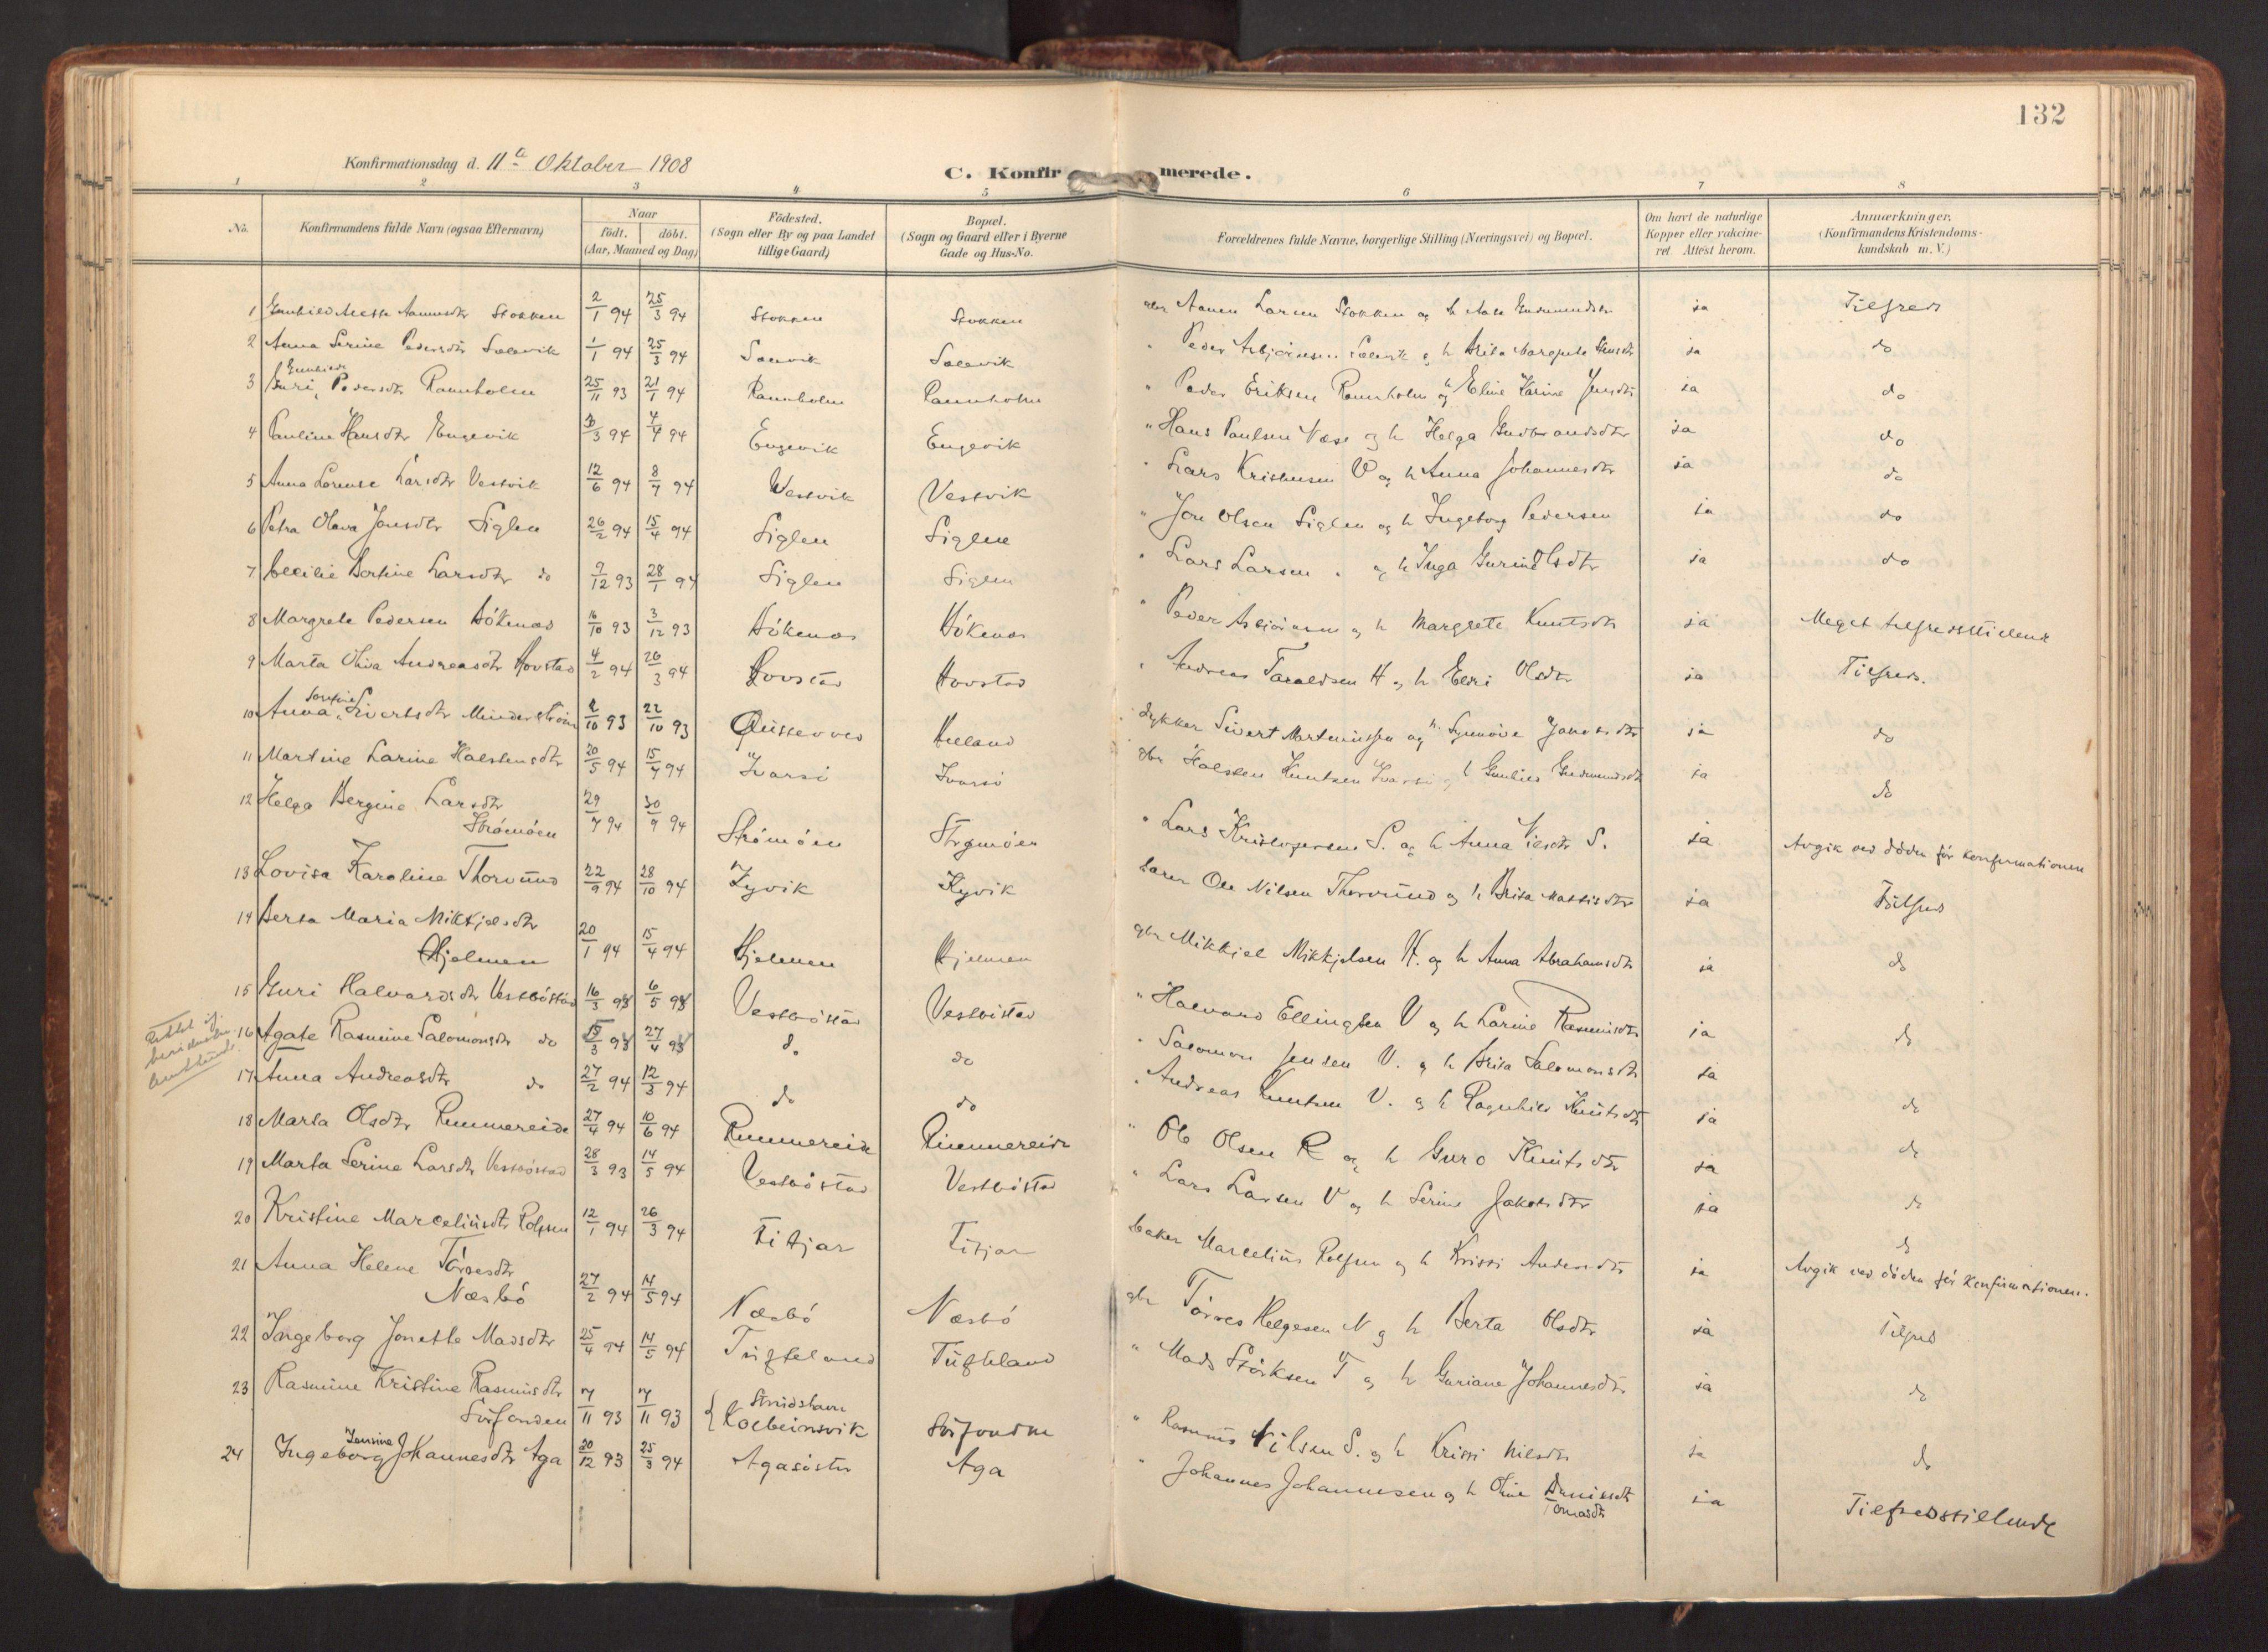 132
Konfirmationsdag d. 11te Oktober 1908
C. Konfirmerede.
1 2 3 4 5 6 7 8
No.
Konfirmandens fulde Navn (ogsaa Efternavn)
Naar
födt. döbt.
(Aar, Maaned og Dag)
Födested.
(Sogn eller By og paa Landet
tillige Gaard)
Bopæl.
(Sogn og Gaard eller i Byerne
Gade og Hus-No.
Forældrenes fulde Navne, borgerlige Stilling (Næringsvei) og Bopæl.
Om havt de naturlige
Kopper eller vakcine-
ret. Attest herom.
Anmærkninger,
(Konfirmandens Kristendoms-
kundskab m. V.)
1 Stokken 2/1 94 25/3 94 Stokken Stokken gbr Larsen Stokken og h ja Tilfreds
2 Anna Serine Pedersdtr Solevik 1/1 94 25/3 94 Solevik " Peder Asbjørnsen Solevik og h Brita Margrete ja do
Gunhild
3 Guri Pedersdtr Rannholm 25/11 93 21/1 94 Rannholm Rannholm " Peder Eriksen Rannholm og h Eline Karine Jensdtr ja do
4 Pauline Hansdtr Engevik /3 94 4/4 94 Engevik Engevik " Hans Paulsen Næse og h Helga Gudbrandsdtr ja do
5 Anna Lorense Larsdtr Vestvik 12/6 94 8/7 94 Vestvik Vestvik " Lars Kristensen V og h Anna Johannesdtr ja do
6 Petra Olava Jonsdtr Siglen 26/2 94 15/4 94 Siglen Siglen " Jon Olsen Siglen og h Ingeborg Pedersen ja do
7 Cecilie Bertine Larsdtr do 9/12 93 28/1 94 Siglen Siglen " Lars Larsen " og h Inga Gurine Olsdtr ja do
8 Margrete Pedersen Hökenæs 16/10 93 3/12 93 Hökenæs Hökenæs " Peder Asbjörnsen og h Margrete Knutsdtr ja Meget tilfredsstillend
9 Marta Oliva Andreasdtr Hovstad 4/2 94 26/3 94 Hovstad Hovstad " Andreas Taraldsen H og h Eldri Olsdtr ja Tilfreds.
10 Anna Sivertsdtr 2/10 93 22/10 93 dykker Sivert Martinussen og h. Synnöve Jansdtr ja do
11 Martine Larine Halstensdtr 20/5 94 15/7 94 Ivarsö Ivarsö gbr Halsten Knutsen Ivarsö og h Gunhild Gudmundsdtr ja do
12 Helga Bergine Larsdtr
Strömöen 29/7 94 30/9 94 Strömöen Strömöen " Lars Kristofersen S. og h Anna S. ja Avgik ved döden för konfirmationen
13 Lovisa Karoline Thorvund 22/9 94 28/10 94 Kyvik Kyvik Ole Nilsen Thorvund og h Brita Mattisdtr ja Tilfreds
14 Berta Maria Mikkjelsdtr
Hjelmen 20/1 94 15/4 94 Hjelmen Hjelmen gbr Mikkjel Mikkjelsen H. og h Anna Abrahamsdtr ja do
15 Guri Halvardsdtr Vestböstad 16/3 93 6/5 93 Vestböstad Vestböstad " Halvard Ellingsen V og h Larine Rasmusdtr ja do
Rettet
16 Agate Rasmine Salomonsdtr do 15/3 93 27/4 93 do do " Salomon Jensen V. og h Brita Salomonsdtr ja do
17 Anna Andreasdtr do 27/2 94 12/3 94 do do " Andreas Knutsen V. og h Ragnhild Knutsdtr ja do
18 Marta Olsdtr Rimmereide 27/4 94 10/6 94 Rimmereide Rimmereide " Ole Olsen R og h Guro Knutsdtr ja do
19 Marta Serine Larsdtr Vestböstad 28/3 93 14/5 94 Vestböstad Vestböstad " Lars Larsen V og h Serine Jakobsdtr ja do
20 Kristine Marceliusdtr Rolfsen 12/1 94 26/3 94 Fitjar Fitjar baker Marcelius Rolfsen og h Kristi Andersdtr ja do
21 Anna Helene Törresdtr
Næsbö 27/2 94 14/5 94 Næsbö Næsbö gbr Törres Helgesen N og h Berta Olsdtr ja Avgik ved döden för konfirmationen.
22 Ingeborg Jonette Madsdtr 25/4 94 14/5 94 Tufteland Tufteland " Mads Störksen T og h Guriane Johannesdtr ja Tilfreds
23 Rasmine Kristine Rasmusdtr
Sörfonden 7/11 93 7/11 93 { Smidshavn
Kolbeinsvik Sörfonden " Rasmus Nilsen S. og h Kristi Nilsdtr ja do
24 Ingeborg Jensine Johannesdtr Aga 20/12 93 25/3 94 Agasöster Aga " Johannes Johannesen og h Oline
Tomasdtr ja Tilfredsstillende